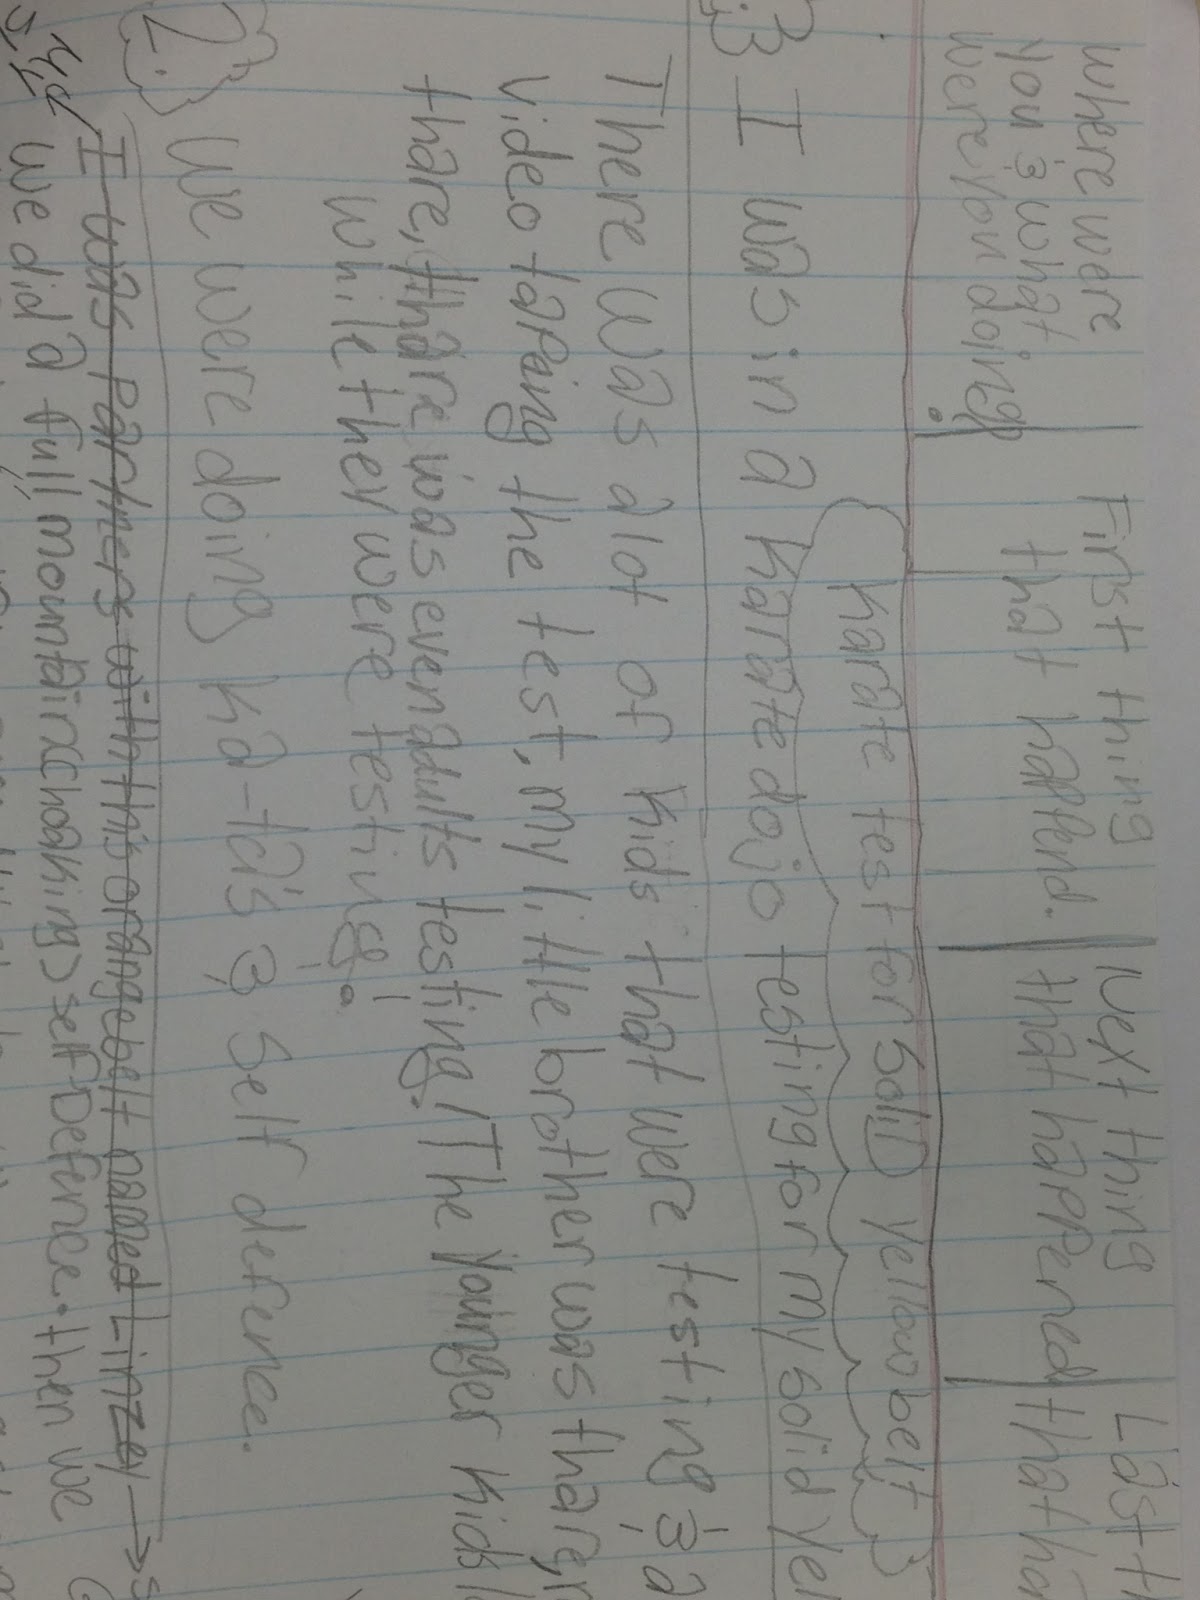 where were | First thing | Next thing | Last th
you & what | that happend. | that happened | that ha
were you doing?
Karate test for SoliD yellow belt
3. I was in a karate dojo testing for my solid yel
There was alot of kids that were testing & a
video taping the test, my little brother was thare,
thare, thare was even adults testing! The younger kids
while ther were testing!.
2. We were doing ka-ta's & self defence.
I was partners with this orange belt named Linzey
we did a full mountain choaking self Defence. then we